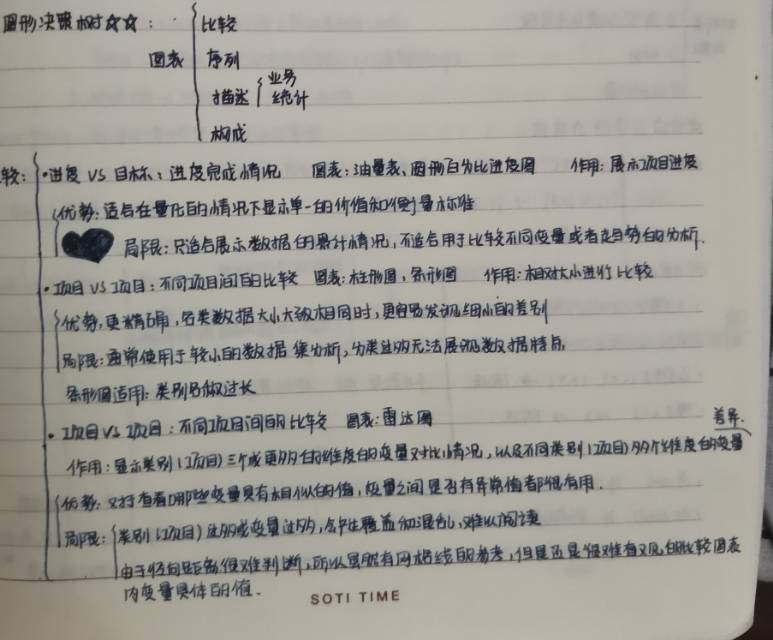 图形决策树☆☆：
比较
图表 序列
描述 业务
统计
构成
较：
·进度 VS 目标：进度完成情况 图表：油量表、圆形百分比进度图 作用：展示项目进度
优势：适合在量化的情况下显示单一的价值和衡量标准
局限：只适合展示数据的累计情况，不适合用于比较不同变量或者趋势的分析.
·项目 VS 项目：不同项目间的比较 图表：柱形图，条形图 作用：相对大小进行比较
优势，更精确，各类数据大小大致相同时，更容易发现细小的差别
局限：通常使用于较小的数据集分析，分类过多无法展现数据特点
条形图适用：类别名做过长
·项目 VS 项目：不同项目间的比较 图表：雷达图
差异.
作用：显示类别（项目）三个或更多的维度的变量对比情况，以及不同类别（项目）多个维度的变量
优势：对于查看哪些变量具有相似的值，变量之间是否有异常值都很有用.
局限：类别（项目）过多或变量过多，会产生覆盖和混乱，难以阅读
由于径向距离很难判断，所以虽然有网格线的参考，但是还是很难直观的比较图表
内变量具体的值.
SOTI TIME